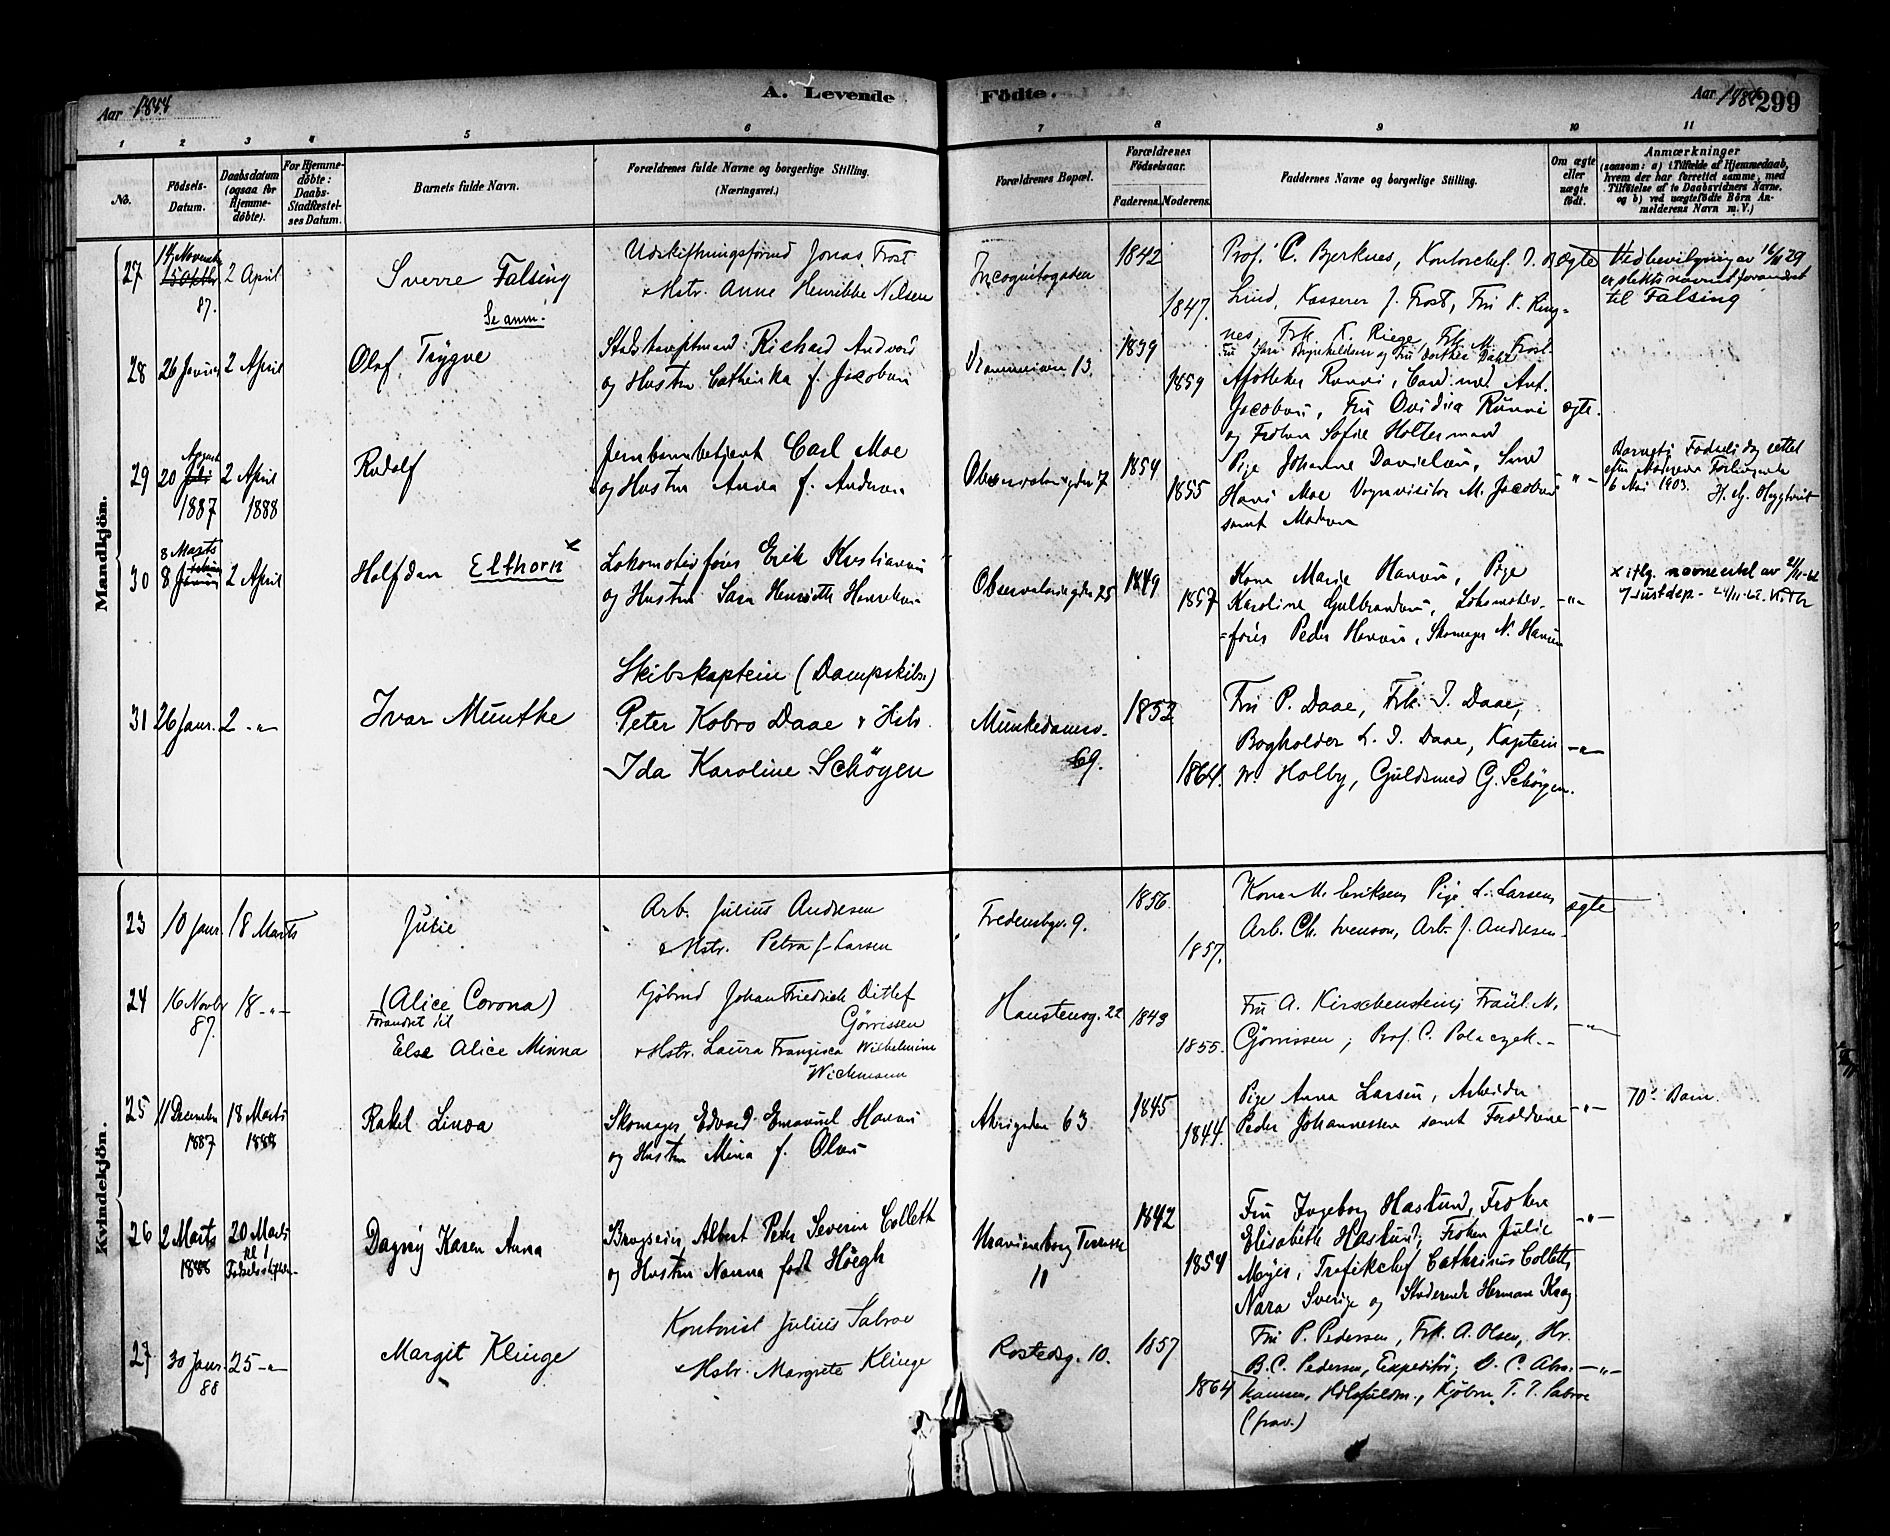 Aar 1888
A. Levende
Födte.
Aar 1888 299
1 2 3 4 5 6 7 8 9 10 11
No.
Födsels-Datum.
Daabsdatum (ogsaa for Hjemme-döbte).
For Hjemme-döbte: Daabs-Stadfæstel-ses Datum.
Barnets fulde Navn.
Forældrenes fulde Navne og borgerlige Stilling.
(Næringsvei.)
Forældrenes Bopæl.
Forældrenes Födselsaar.
Faderens. Moderens.
Faddernes Navne og borgerlige Stilling.
Om ægte eller uægte födt.
Anmærkninger
(saasom: a) i Tilfælde af Hjemmedaab,
hvem der har forrettet samme, med
Tilföielse af to Daabsvidners Navne.
og b) ved uægtefödte Börn An-
melderens Navn m. V.)
Mandkjön.
27
14 Novembr
87.
2 April
Sverre Falsing
Se anm.
Udskiftningsformd Jonas Frost
& Hstr. Anne Henrikke Nilsen
Incognitogaden
1842
1847.
Prof. C. Bjerknes, Kontorchef
Lind, Kasserer J. Frost, Fru K. Ring-
nes, Frk K. Riege, Frk M. Frost
ægte
Ved bevilgning av 16/11 29
er slektsnavnet forandret
til Falsing
28
26 Januar
2 April
Olaf Trygve
Richard Andvord
og Hustru Cathinka f. Jacobsen
13.
1839
1859
Apotheker Runni, Cand. med. Ant.
Jacobsen, Fru Ovidia Runni
og Frøken Sofie Holtermand
ægte.
29
August
20 Juli
1887
2 April
1888
Rudolf
Jernbanebetjent Carl Moe
og Hustru Anna f. Andersen
Observatoriegden 7
1854
1855
Pige Johanne Davidsen, Smed
Hans Moe Vognvisitør M. Jacobsen
samt Moderen
" -
Barnets Fødselsdag rettet
efter Moderens Forlangende
6 Mai 1903.
30
8 Marts
8 Januar
2 April
Halfdan Elthorn x
Lokomotivfører Erik Kristiansen
og Hustru Sara Henriette Henriksen
Observatoriegden 25
1849
1857
Kone Marie Hansen, Pige
Karoline Gulbrandsen, Lokomotiv-
=fører Peder Hansen, Skomager N. Hansen
-"-
x iflg. navneendel av
Justdep.
31
26 Janr.
2 -"-
Ivar Munthe
Skibskaptein (Dampskibs)
Peter Kobro Daae & Hstr.
Ida Karoline Schøyen
Munkedamsv.
69.
1852
1864.
Fru P. Daae, Frk. I. Daae,
Bogholder L. I. Daae, Kaptein
W. Holby, Guldsmed G. Schøyen.
-"-
Kvindekjön.
23
10 Janr.
18 Marts
Julie
Arb. Julius Andresen
& Hstr. Petra f. Larsen
Fredensbgv. 9.
1856.
1857.
Kone M. Eriksen, Pige L. Larsen,
Arb. Ch. Svenson, Arb. J. Andresen.
ægte
24
16 Novbr
87.
18 -"-
(Alice Corona)
Forandret til
Else Alice Minna
Gjøbmd Johan Friedrich Ditlef
Görrissen
& Hstr. Laura Franzisca Wilhelmine
Wichmann
Hanstensg. 22
1843
1855.
Fru A. Kirschenstein, Fräul. M.
Gjørrissen, Prof. C. Polaczek.-
-"-
25
11 December
1887
18 Marts
1888
Rakel Linda
Skomager Edvard Emanuel Hansen
og Hustru Mina f. Olsen
Akersgden 63
1845
1844.
Pige Anna Larsen, Arbeider
Peder Johannessen samt Forældrene
-"-
70: Barn.
26
2 Marts
1888
20 Marts
til 1
Fødselsstiftelsen
Dagny Karen Anna
Brugseier Albert Peter Severin Collett
og Hustru Nanna født Höegh
Uranienborg Terrasse
11
1842
1854
Fru Ingeborg Haslund, Frøken
Elisabeth Haslund, Frøken Julie
Meyer, Trafikchef Cathrinus Collett,
og Studerende Herman Krag
-"-
27
30 Janr.
88
25 -"-
Margit Klinge
Kontorist Julius Sabroe
& Hstr. Margrete Klinge
Rostedsg. 10.
1857
1864
Fru P. Pedersen, Frk. A. Olsen, Hr.
B. C. Pedersen, Expeditør, C. C. Abra-
hamsen, Kjøbm. T. T. Sabroe
(frav.)
-"-